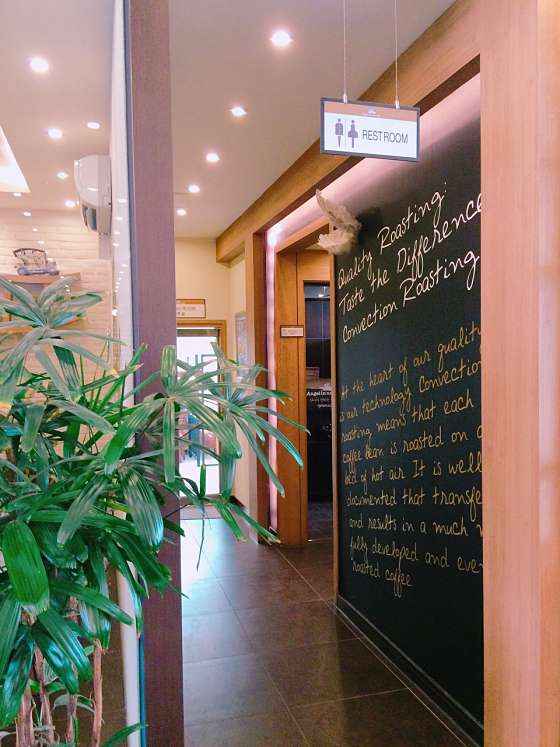 RESTROOM
Quality Roasting:
Taste the Difference
Convection Roasting
At the heart of our quality
is our technology Convection
roasting means that each
coffee bean is roasted on a
bed of hot air It is well
documented that transfe
and results in a much
fully developed and eve
roasted coffee
Angelinus